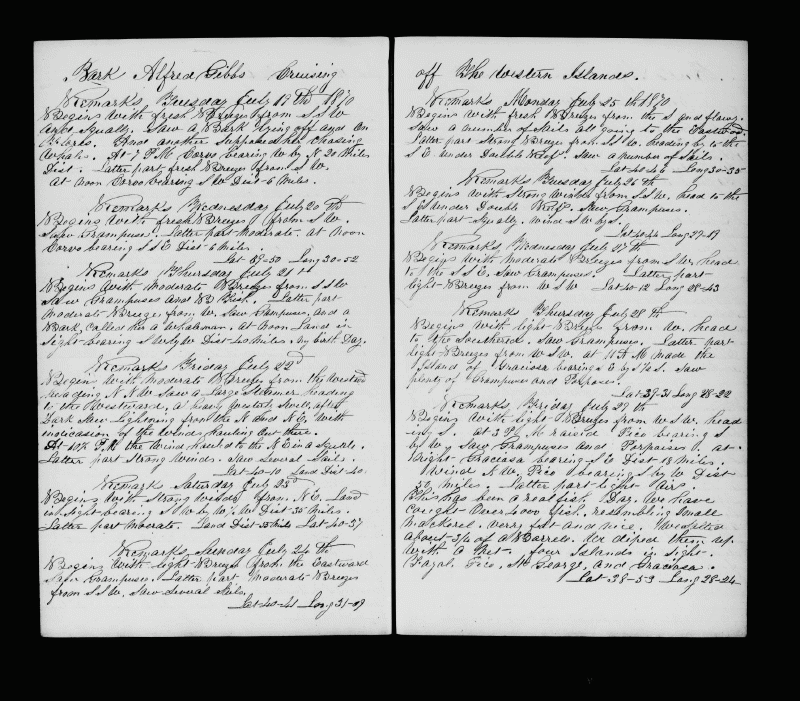 Bark Alfred Gibbs Cruising
Remarks Tuesday July 19th 1870
Begins with fresh Breezes from S S W
Squally. Saw a Bark lying off and on
Flores. And another supposed her chasing
Whales. At 7 P.M. Corvo bearing W by N 20 Miles
Dist. Latter part fresh Breezes from S W.
at Noon Corvo bearing S W Dist 6 Miles.
Remarks Wednesday July 20th
Begins with fresh Breezes from S W.
Saw Grampuses. Latter part Moderate. at Noon
Corvo bearing S S E Dist 6 Miles.
Lat 39-50 Long 30-52
Remarks Thursday July 21st
Begins with Moderate Breezes from S S W
Saw Grampuses and B Fish. Latter part
Moderate Breezes from W. Saw Grampuses, and a
Bark, called her a Whaleman. At Noon Land in
Sight bearing S W by W Dist 40 Miles. My birth Day.
Remarks Friday July 22d
Begins with Moderate Breezes from the Westward
heading N.N.W. Saw a Large Steamer heading
to the Westward, a heavy Westerly Swell, after
Dark Saw Lightning from the N and N.E. With
indication of the winds hauling out there.
At 10 P.M. the Wind hauled to the N E in a Squall.
Latter part Strong Winds. Saw Several Sails.
Lat 40-10 Land Dist 40
Remarks Saturday July 23d
Begins with Strong Winds from N.E. Land
in sight bearing S W by W ½ W Dist 35 Miles.
Latter part Moderate. Land Dist 55 Miles Lat 40-37
Remarks Sunday July 24th
Begins with light Breezes from the Eastward
Saw Grampuses. Latter part Moderate Breezes
from S S W. Saw Several Sails.
Lat 40-41 Long 31-09
off The Western Islands.
Remarks Monday July 25th 1870
Begins with fresh Breezes from the S and flawy.
Saw a number of Sails all going to the Eastward.
Latter part Strong Breezes from S S W. heading by to the
S E under Double Reefs. Saw a number of Sails.
Lat 40-46 Long 30-35
Remarks Tuesday July 26th
Begins with Strong Winds from S S W. head to the
S E under Double Reefs. Saw Grampuses.
Latter part Squally. Wind S W by S.
Lat 40-44 Long 29-19
Remarks Wednesday July 27th
Begins with Moderate Breezes from S W. head
to the S S E. Saw Grampuses. Latter part
light Breezes from W S W Lat 40-12 Long 28-43
Remarks Thursday July 28th
Begins with light Breezes from W. head
to the Southerd. Saw Grampuses. Latter part
light Breezes from W S W. at 11 A M made the
Island of Graciosa bearing S E by S ½ S. Saw
plenty of Grampuses and Porpoises.
Lat 39-31 Long 28-22
Remarks Friday July 29th
Begins with light Breezes from W S W. head
ing S. at 3 P.M raised Pico bearing S
by W. Saw Grampuses and Porpoises. at
Night Graciosa bearing S E Dist 18 Miles.
Wind N.W. Pico bearing S by W Dist
50 Miles. Latter part light Airs.
This has been a real fish Day. We have
caught over 4000 fish, resembling Small
Mackerel. verry fat and nice. We salted
about 3/4 of a Barrel. We diped them up
with a Net. four Islands in Sight.
Fayal, Pico, St George, and Graciosa.
Lat 38-53 Long 28-24